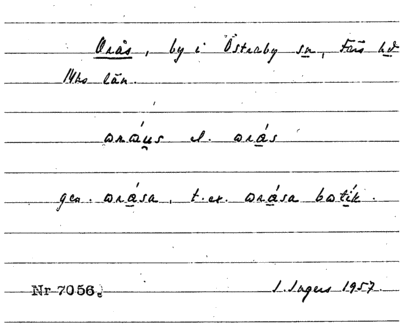 Orås, by i Östraby sn, Färs hd
Mhs län.
ɷráus el. ɷrás
gen. ɷrása, t.ex. ɷrása bɷtík.
Nr 7056. I. Ingers 1957.